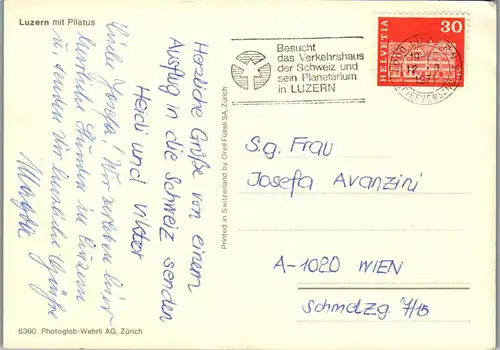 Luzern mit Pilatus
Liebe Josefa! Wir erleben hier
herrliche Stunden in Luzern
u. senden Dir herzliche Grüße
Herzliche Grüße von einem
Ausflug in die Schweiz senden
Heidi und Viktor
6360 Photoglob-Wehrli AG, Zürich
Printed in Switzerland by Orell Füssli SA, Zurich
Besucht
das Verkehrshaus
der Schweiz und
sein Planetarium
in LUZERN
HELVETIA
30
S.g. Frau
Josefa Avanzini
A-1020 WIEN
Schmelzg. 7/15